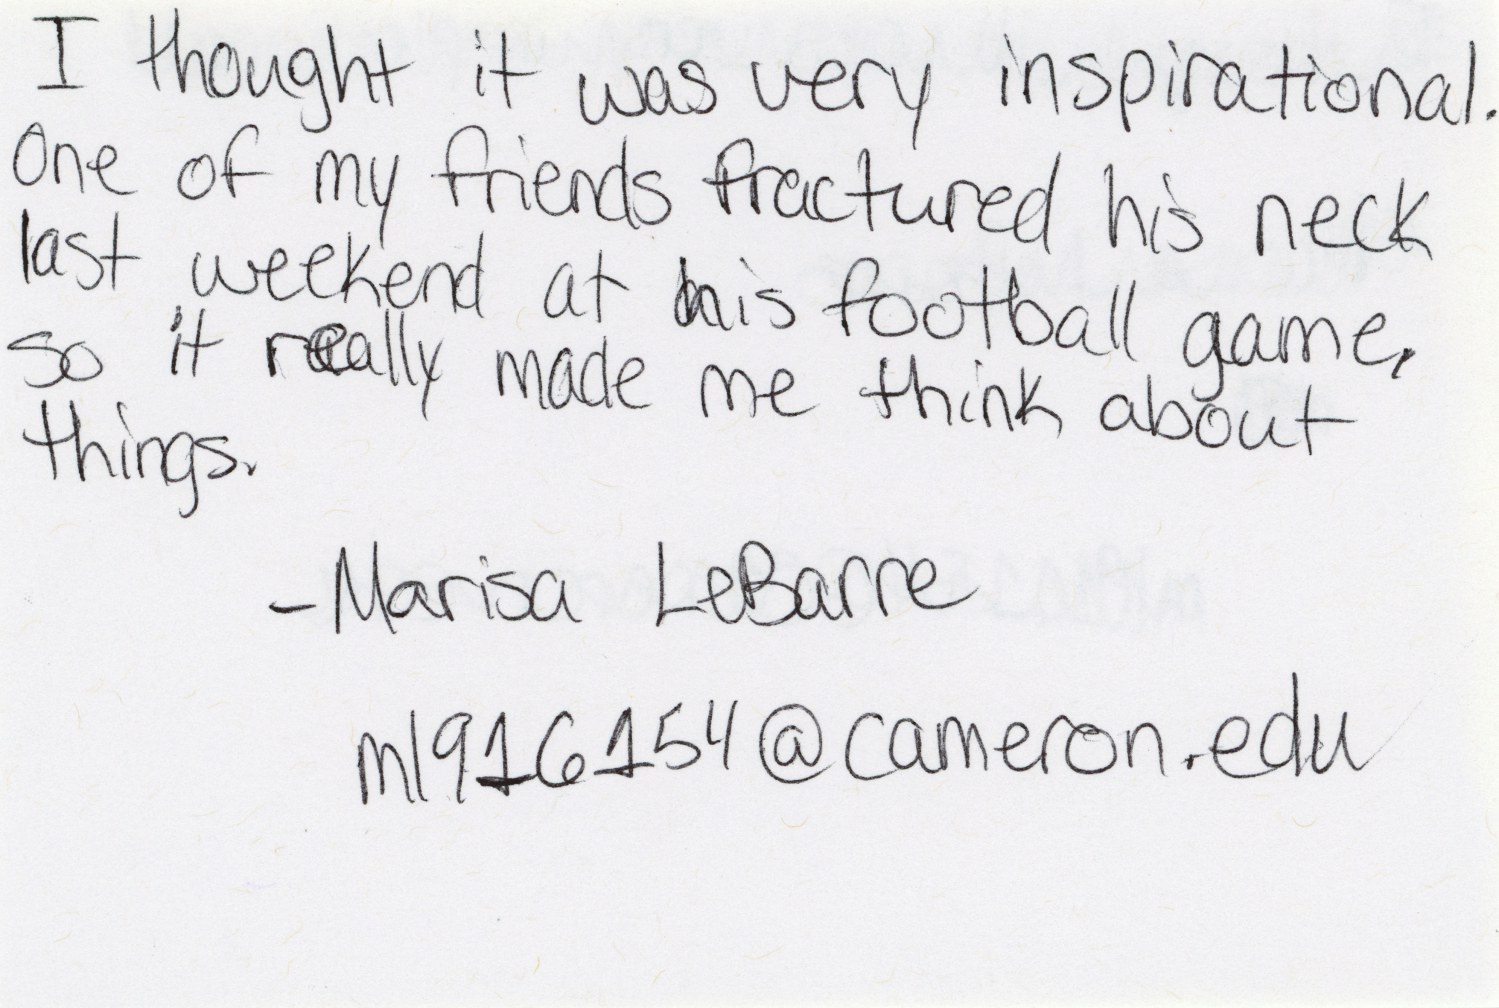 I thought it was very inspirational.
One of my friends fractured his neck
last weekend at his football game,
so it really made me think about
things.
-Marisa LeBarre
ml916154@cameron.edu